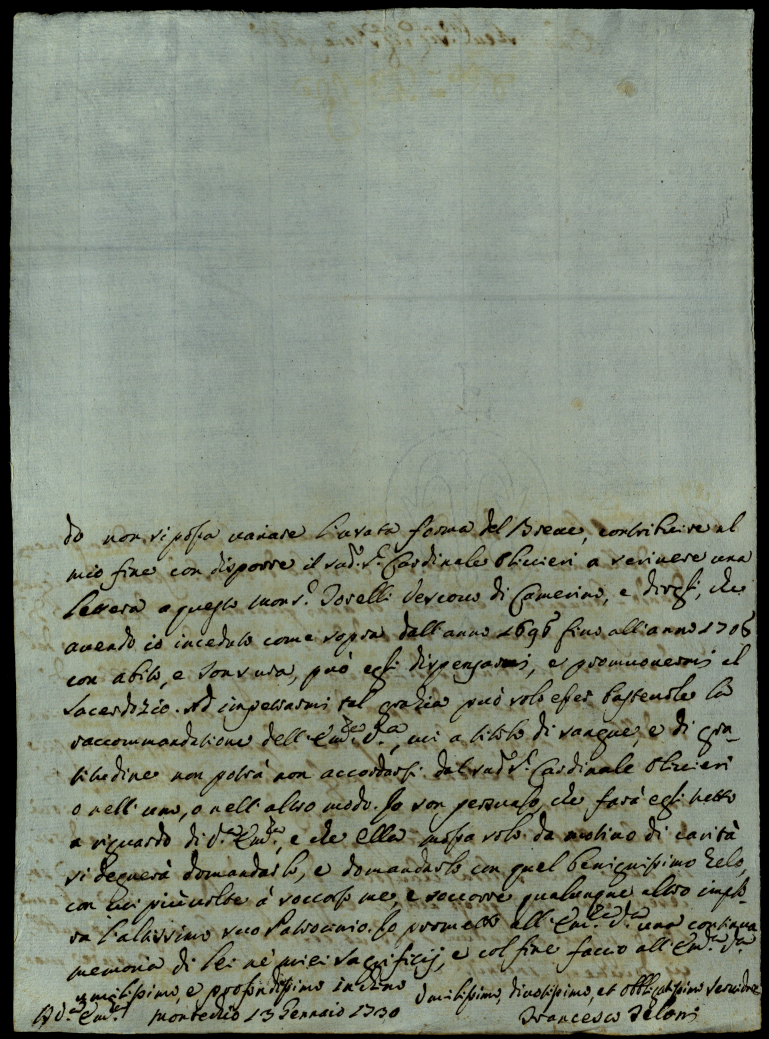 do non si possa variare l'usata forma del Breve, contribuire al
mio fine con disporre il sud.º S.r Cardinale Olivieri a scrivere una
lettera a questo Mons.r Vescovo di Camerino, e dirgli, che
avendo io inceduto come sopra dall'anno 1696 fino all'anno 1706
con abito, e tonsura, può egli dispensarmi, e promuovermi al
Sacerdozio. Ad impetrarmi tal grazia può solo esser bastevole la
raccommandatione dell'Em.za V.ra, ne a titolo di sangue, e di gra-
titudine non potrà non accordarsi dal sud.º S.r Cardinale Olivieri
o nell'uno, o nell'altro modo. Io son persuaso, che farà egli tutto
a riguardo di V.ra Em.za, e che Ella mossa solo da motivo di carità
si degnerà domandarlo, e domandarlo con quel benignissimo zelo,
con cui più volte à soccorso me, e soccorre qualunque altro implo-
ra l'altissimo suo Patrocinio. Io prometto all'Em.za V.ra una continua
memoria di Lei ne' miei sacrificij, e col fine faccio all'Em.za V.ra
umilissimo, e profondissimo inchino
Di V.ra Em.za Montecchio 13 Gennaio 1730 Umilissimo, divotissimo, et obbligatissimo servidore
Francesco